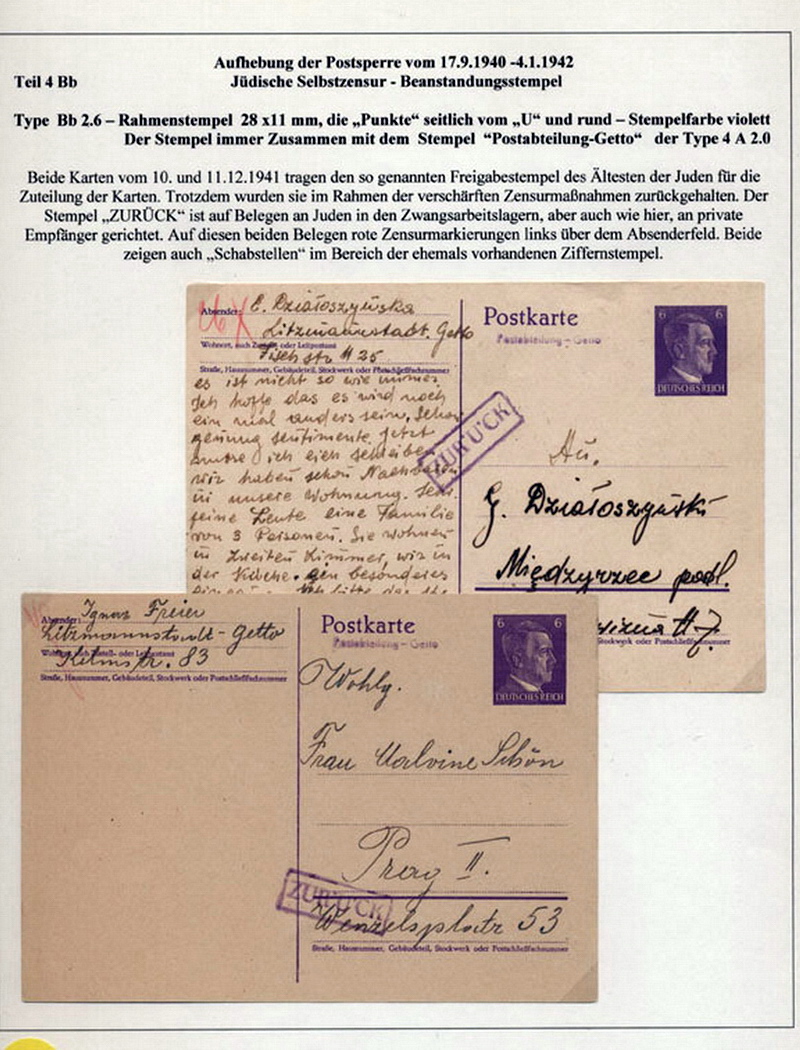 Aufhebung der Postsperre vom 17.9.1940 -4.1.1942
Teil 4 Bb
Jüdische Selbstzensur - Beanstandungsstempel
Type Bb 2.6 – Rahmenstempel 28 x11 mm, die „Punkte“ seitlich vom „U“ und rund – Stempelfarbe violett
Der Stempel immer Zusammen mit dem Stempel “Postabteilung-Getto“ der Type 4 A 2.0
Beide Karten vom 10. und 11.12.1941 tragen den so genannten Freigabestempel des Ältesten der Juden für die
Zuteilung der Karten. Trotzdem wurden sie im Rahmen der verschärften Zensurmaßnahmen zurückgehalten. Der
Stempel „ZURÜCK“ ist auf Belegen an Juden in den Zwangsarbeitslagern, aber auch wie hier, an private
Empfänger gerichtet. Auf diesen beiden Belegen rote Zensurmarkierungen links über dem Absenderfeld. Beide
zeigen auch „Schabstellen“ im Bereich der ehemals vorhandenen Ziffernstempel.
Absender: E. Działoszyńska
Litzmannstadt. Getto
Wohnort, auch Zustell- oder Leitpostamt
Fischstr 25
Straße, Hausnummer, Gebäudeteil, Stockwerk oder Postschließfachnummer
es ist nicht so wie immer
Ich hoffe das es wird noch
ein mal anders sein.
jetzt
ich eich schreiben
wir haben schon
in unsere Wohnung.
feine Leute eine Familie
von 3 Personen. Sie wohnen
in zweiten Zimmer, wir in
der Küche. besonderes
Postkarte
Postabteilung - Getto
6 6
DEUTSCHES REICH
ZURÜCK
An.
G. Działoszyński
Międzyrzec podl.
Stockwerk oder Postschließfachnummer
Absender: Ignaz Freier
Litzmannstadt - Getto
Wohnort, auch Zustell- oder Leitpostamt
Kelmstr. 83
Straße, Hausnummer, Gebäudeteil, Stockwerk oder Postschließfachnummer
Postkarte
Postabteilung - Getto
6 6
DEUTSCHES REICH
Wohlg.
Frau Malvine Schön
Prag II.
ZURÜCK
Wenzelsplatz 53
Straße, Hausnummer, Gebäudeteil, Stockwerk oder Postschließfachnummer